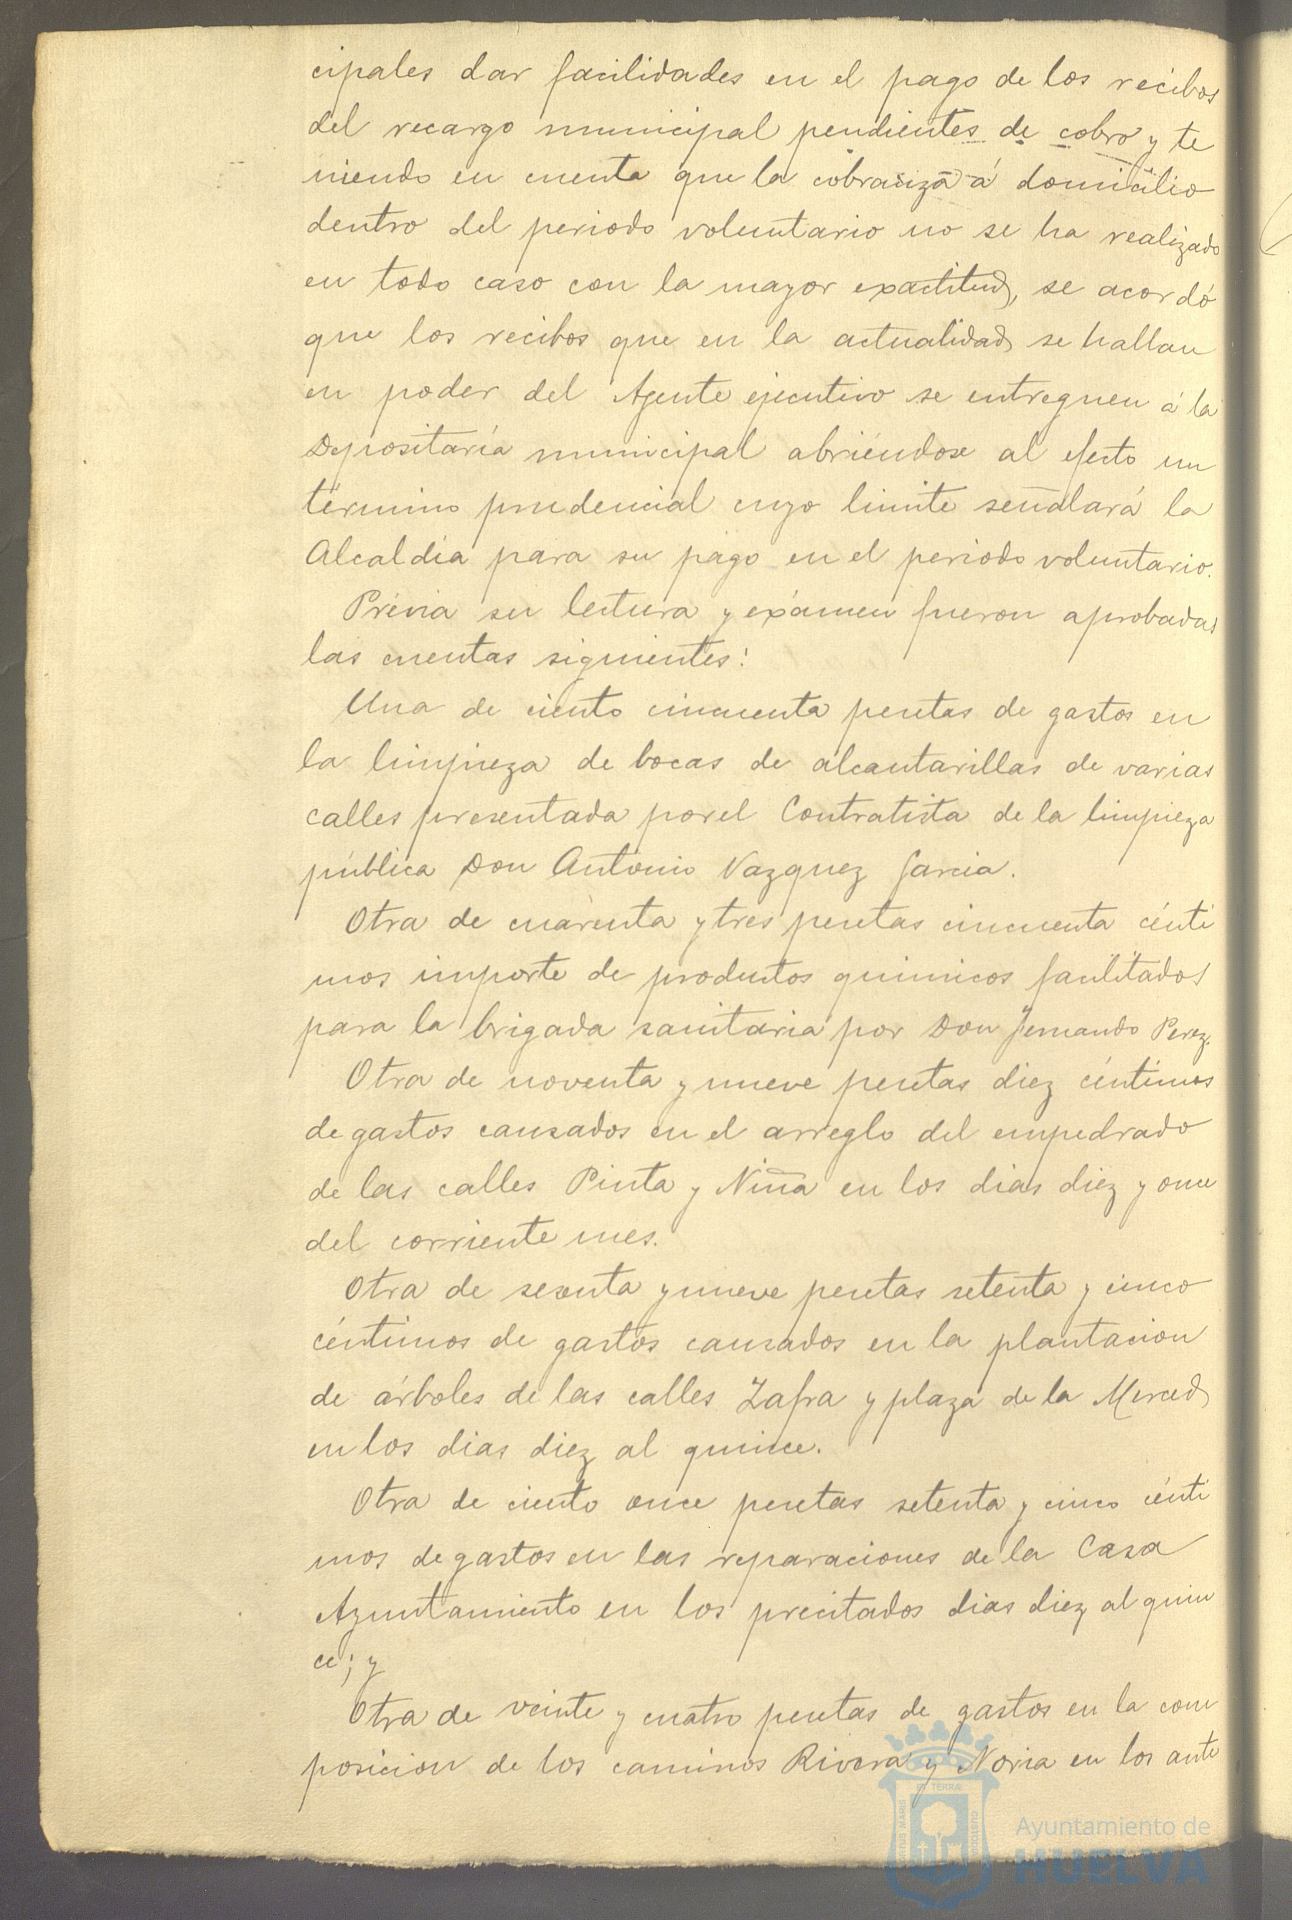 cipales dar facilidades en el pago de los recibos
del recargo municipal pendientes de cobro y te
niendo en cuenta que la cobranza á domicilio
dentro del periodo voluntario no se ha realizado
en todo caso con la mayor exactitud, se acordó
que los recibos que en la actualidad se hallan
en poder del Agente ejecutivo se entreguen á la
Depositaría municipal abriéndose al efecto un
término prudencial cuyo limite señalará la
Alcaldía para su pago en el periodo voluntario.
Prévia su lectura y exámen fueron aprobadas
las cuentas siguientes:
Una de ciento cincuenta pesetas de gastos en
la limpieza de bocas de alcantarillas de varias
calles presentada por el Contratista de la limpieza
pública Don Antonio Vazquez Garcia.
Otra de cuarenta y tres pesetas cincuenta cénti
mos importe de productos quimicos facilitados
para la brigada sanitaria por Don Fernando Perez.
Otra de noventa y nueve pesetas diez céntimos
de gastos causados en el arreglo del empedrado
de las calles Pinta y Niña en los dias diez y once
del corriente mes.
Otra de sesenta y nueve pesetas setenta y cinco
céntimos de gastos causados en la plantacion
de árboles de las calles Zafra y plaza de la Merced
en los dias diez al quince.
Otra de ciento once pesetas setenta y cinco cénti
mos de gastos en las reparaciones de la Casa
Ayuntamiento en los precitados dias diez al quin
ce; y
Otra de veinte y cuatro pesetas de gastos en la com
posicion de los caminos Rivera y Noria en los ante
Ayuntamiento de
HUELVA